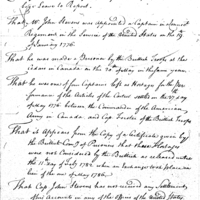 beg leave to Report.
That Mr John Stevens was appointed a Captain in
Regiment in the Service of the United States on the
January 1776.
That he was made a Prisoner by the British Troops at the
Cedars in Canada on the 20th of May in the same year.
That he was one of four Captains left as Hostage for the per-
formance of the Articles of the Cartel settled on the 27 day
of May 1776 between the Commander of the American
Army in Canada and Capt Forster of the British Troops
That it appears from the Copy of a Certificate given by
the British Comy of Prisoners that those Hostages
were not considered by the British as released untill
the 15 day of July 1782 when an Exchange took place
of the
That Capt John Stevens has not received any Settlement
of his Accounts in any of the Offices of the United States